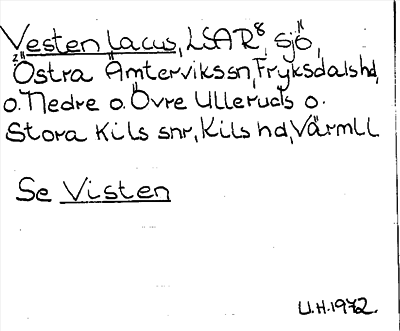 Vesten lacus, LSAR⁸, sjö,
Östra Ämtervikssn, Fryksdalshd,
o. Nedre o. Övre Ulleruds o.
Stora Kils snr, Kils hd, Värmll
Se Visten
U.H. 1972.